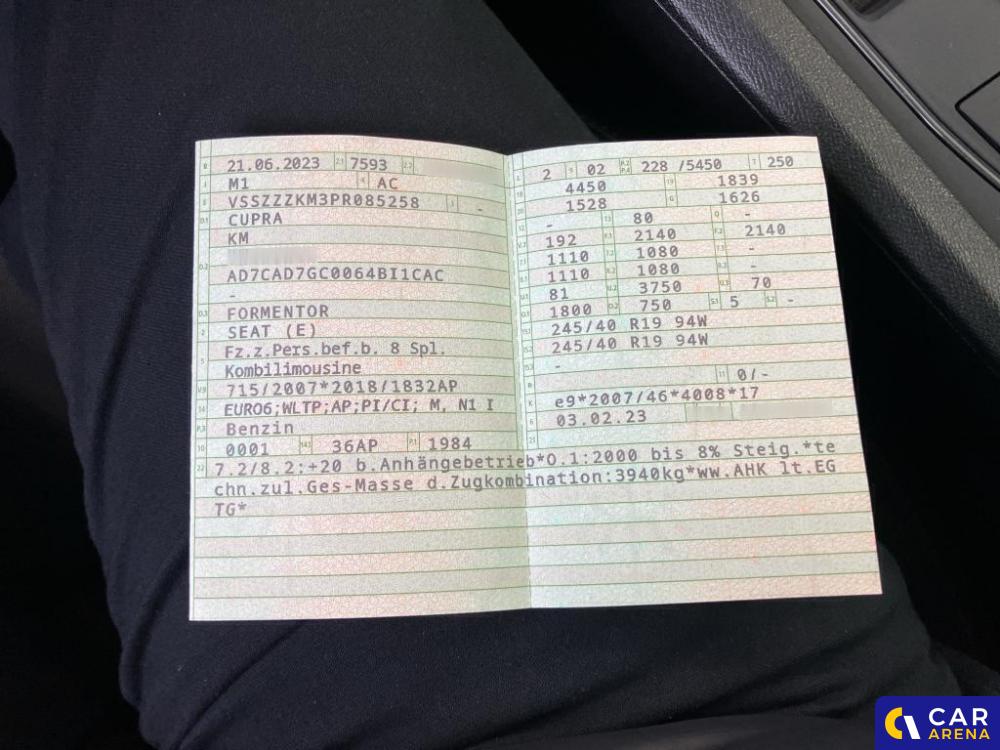 B 21.06.2023 2.1 7593 2.2
J M1 4 AC
E VSSZZZKM3PR085258 3 -
D.1 CUPRA
KM
D.2
AD7CAD7GC0064BI1CAC
-
D.3 FORMENTOR
2 SEAT (E)
5 Fz.z.Pers.bef.b. 8 Spl.
Kombilimousine
V.9 715/2007*2018/1832AP
14 EURO6;WLTP;AP;PI/CI; M, N1 I
P.3 Benzin
10 0001 14.1 36AP P.1 1984
22 7.2/8.2:+20 b.Anhängebetrieb*O.1:2000 bis 8% Steig.*te
chn.zul.Ges-Masse d.Zugkombination:3940kg*ww.AHK lt.EG
TG*
L 2 9 02 P.2 P.4 228 /5450 T 250
18 4450 19 1839
20 1528 G 1626
12 - 13 80 Q -
V.7 192 F.1 2140 F.2 2140
7.1 1110 7.2 1080 7.3 -
8.1 1110 8.2 1080 8.3 -
U.1 81 U.2 3750 U.3 70
O.1 1800 O.2 750 S.1 5 S.2 -
15.1 245/40 R19 94W
15.2 245/40 R19 94W
15.3 -
R 11 0/-
K e9*2007/46*4008*17
6 03.02.23
21
CAR
ARENA